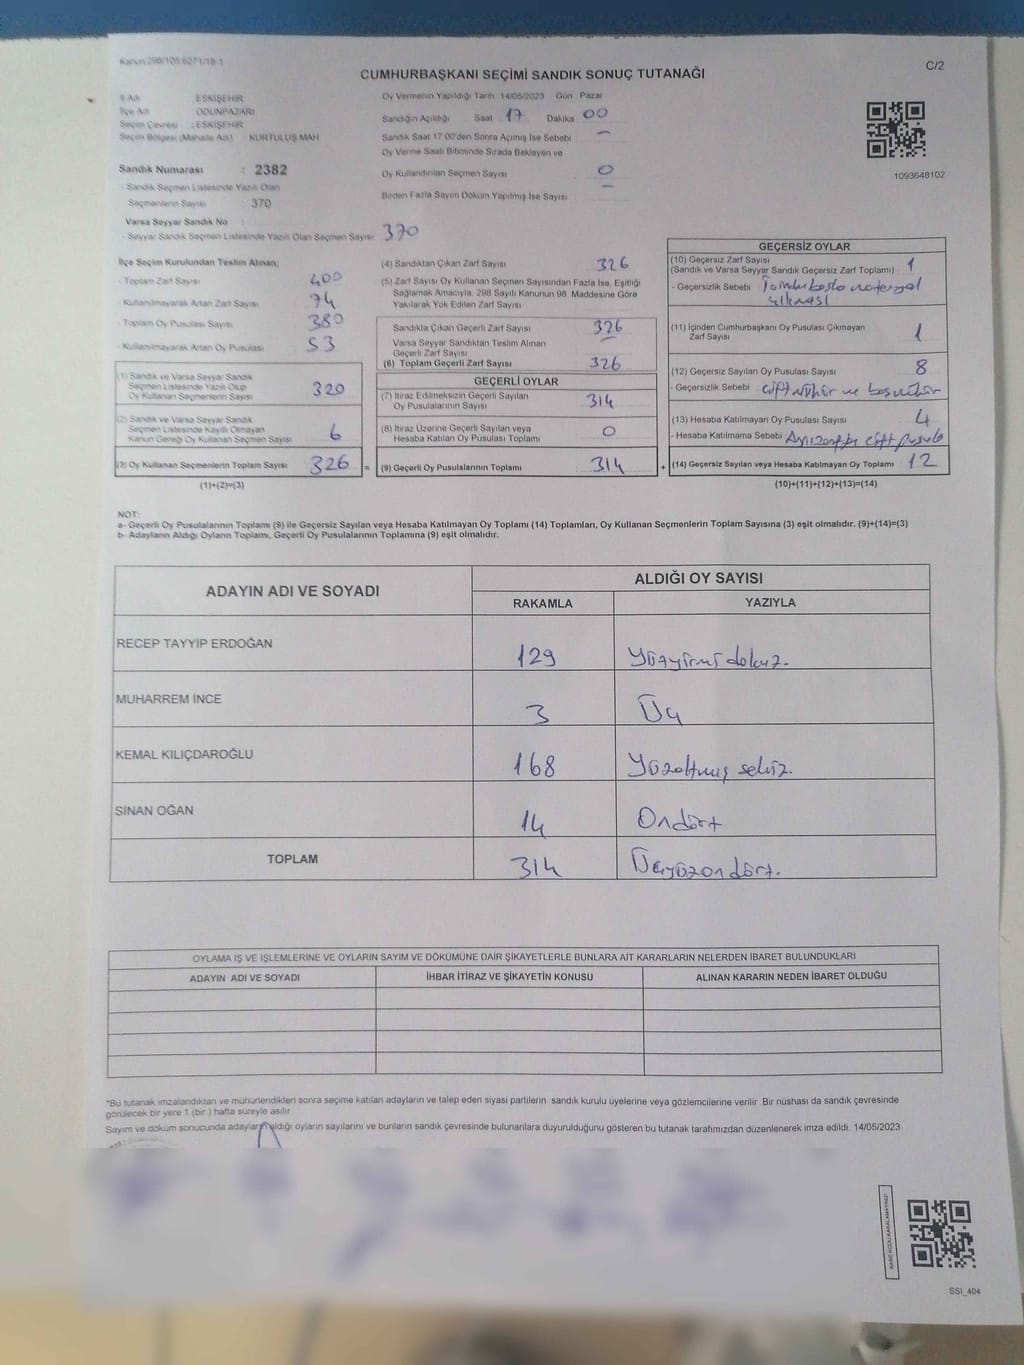 Kanun 298/105 6271/18-1
C/2
CUMHURBAŞKANI SEÇİMİ SANDIK SONUÇ TUTANAĞI
İl Adı ESKİŞEHİR
İlçe Adı ODUNPAZARI
Seçim Çevresi : ESKİŞEHİR
Seçim Bölgesi (Mahalle Adı) : KURTULUŞ MAH
Sandık Numarası : 2382
- Sandık Seçmen Listesinde Yazılı Olan
Seçmenlerin Sayısı : 370
Varsa Seyyar Sandık No
- Seyyar Sandık Seçmen Listesinde Yazılı Olan Seçmen Sayısı: 370
Oy Vermenin Yapıldığı Tarih 14/05/2023 Gün Pazar
Sandığın Açıldığı Saat 17 Dakika 00
Sandık Saat 17:00'den Sonra Açılmış İse Sebebi —
Oy Verme Saati Bitiminde Sırada Bekleyen ve
Oy Kullandırılan Seçmen Sayısı 0
Birden Fazla Sayım Döküm Yapılmış İse Sayısı —
1093648102
İlçe Seçim Kurulundan Teslim Alınan;
- Toplam Zarf Sayısı 400
- Kullanılmayarak Artan Zarf Sayısı 74
- Toplam Oy Pusulası Sayısı 380
- Kullanılmayarak Artan Oy Pusulası 53
(1) Sandık ve Varsa Seyyar Sandık
Seçmen Listesinde Yazılı Olup
Oy Kullanan Seçmenlerin Sayısı 320
(2) Sandık ve Varsa Seyyar Sandık
Seçmen Listesinde Kayıtlı Olmayan
Kanun Gereği Oy Kullanan Seçmen Sayısı 6
(3) Oy Kullanan Seçmenlerin Toplam Sayısı 326 =
(1)+(2)=(3)
(4) Sandıktan Çıkan Zarf Sayısı 326
(5) Zarf Sayısı Oy Kullanan Seçmen Sayısından Fazla İse, Eşitliği
Sağlamak Amacıyla, 298 Sayılı Kanunun 98. Maddesine Göre
Yakılarak Yok Edilen Zarf Sayısı
Sandıkta Çıkan Geçerli Zarf Sayısı 326
Varsa Seyyar Sandıktan Teslim Alınan
Geçerli Zarf Sayısı —
(6) Toplam Geçerli Zarf Sayısı 326
GEÇERLİ OYLAR
(7) İtiraz Edilmeksizin Geçerli Sayılan
Oy Pusulalarının Sayısı 314
(8) İtiraz Üzerine Geçerli Sayılan veya
Hesaba Katılan Oy Pusulası Toplamı 0
(9) Geçerli Oy Pusulalarının Toplamı 314 +
GEÇERSİZ OYLAR
(10) Geçersiz Zarf Sayısı
(Sandık ve Varsa Seyyar Sandık Geçersiz Zarf Toplamı) 1
- Geçersizlik Sebebi
çıkması
(11) İçinden Cumhurbaşkanı Oy Pusulası Çıkmayan
Zarf Sayısı 1
(12) Geçersiz Sayılan Oy Pusulası Sayısı 8
- Geçersizlik Sebebi çift mühür ve boş mühür
(13) Hesaba Katılmayan Oy Pusulası Sayısı 4
- Hesaba Katılmama Sebebi Aynı zarfta çift pusula
(14) Geçersiz Sayılan veya Hesaba Katılmayan Oy Toplamı 12
(10)+(11)+(12)+(13)=(14)
NOT:
a- Geçerli Oy Pusulalarının Toplamı (9) ile Geçersiz Sayılan veya Hesaba Katılmayan Oy Toplamı (14) Toplamları, Oy Kullanan Seçmenlerin Toplam Sayısına (3) eşit olmalıdır. (9)+(14)=(3)
b- Adayların Aldığı Oyların Toplamı, Geçerli Oy Pusulalarının Toplamına (9) eşit olmalıdır.
ADAYIN ADI VE SOYADI ALDIĞI OY SAYISI
RAKAMLA YAZIYLA
RECEP TAYYİP ERDOĞAN 129 Yüzyirmi dokuz.
MUHARREM İNCE 3 Üç
KEMAL KILIÇDAROĞLU 168 Yüzaltmış sekiz.
SİNAN OĞAN 14 Ondört
TOPLAM 314 Üçyüzondört.
OYLAMA İŞ VE İŞLEMLERİNE VE OYLARIN SAYIM VE DÖKÜMÜNE DAİR ŞİKAYETLERLE BUNLARA AİT KARARLARIN NELERDEN İBARET BULUNDUKLARI
ADAYIN ADI VE SOYADI İHBAR İTİRAZ VE ŞİKAYETİN KONUSU ALINAN KARARIN NEDEN İBARET OLDUĞU
*Bu tutanak imzalandıktan ve mühürlendikten sonra seçime katılan adayların ve talep eden siyasi partilerin sandık kurulu üyelerine veya gözlemcilerine verilir. Bir nüshası da sandık çevresinde
görülecek bir yere 1 (bir) hafta süreyle asılır.
Sayım ve döküm sonucunda adayların aldığı oyların sayılarını ve bunların sandık çevresinde bulunanlara duyurulduğunu gösteren bu tutanak tarafımızdan düzenlenerek imza edildi. 14/05/2023
KARE KODU KARALAMAYINIZ!
SSI_404